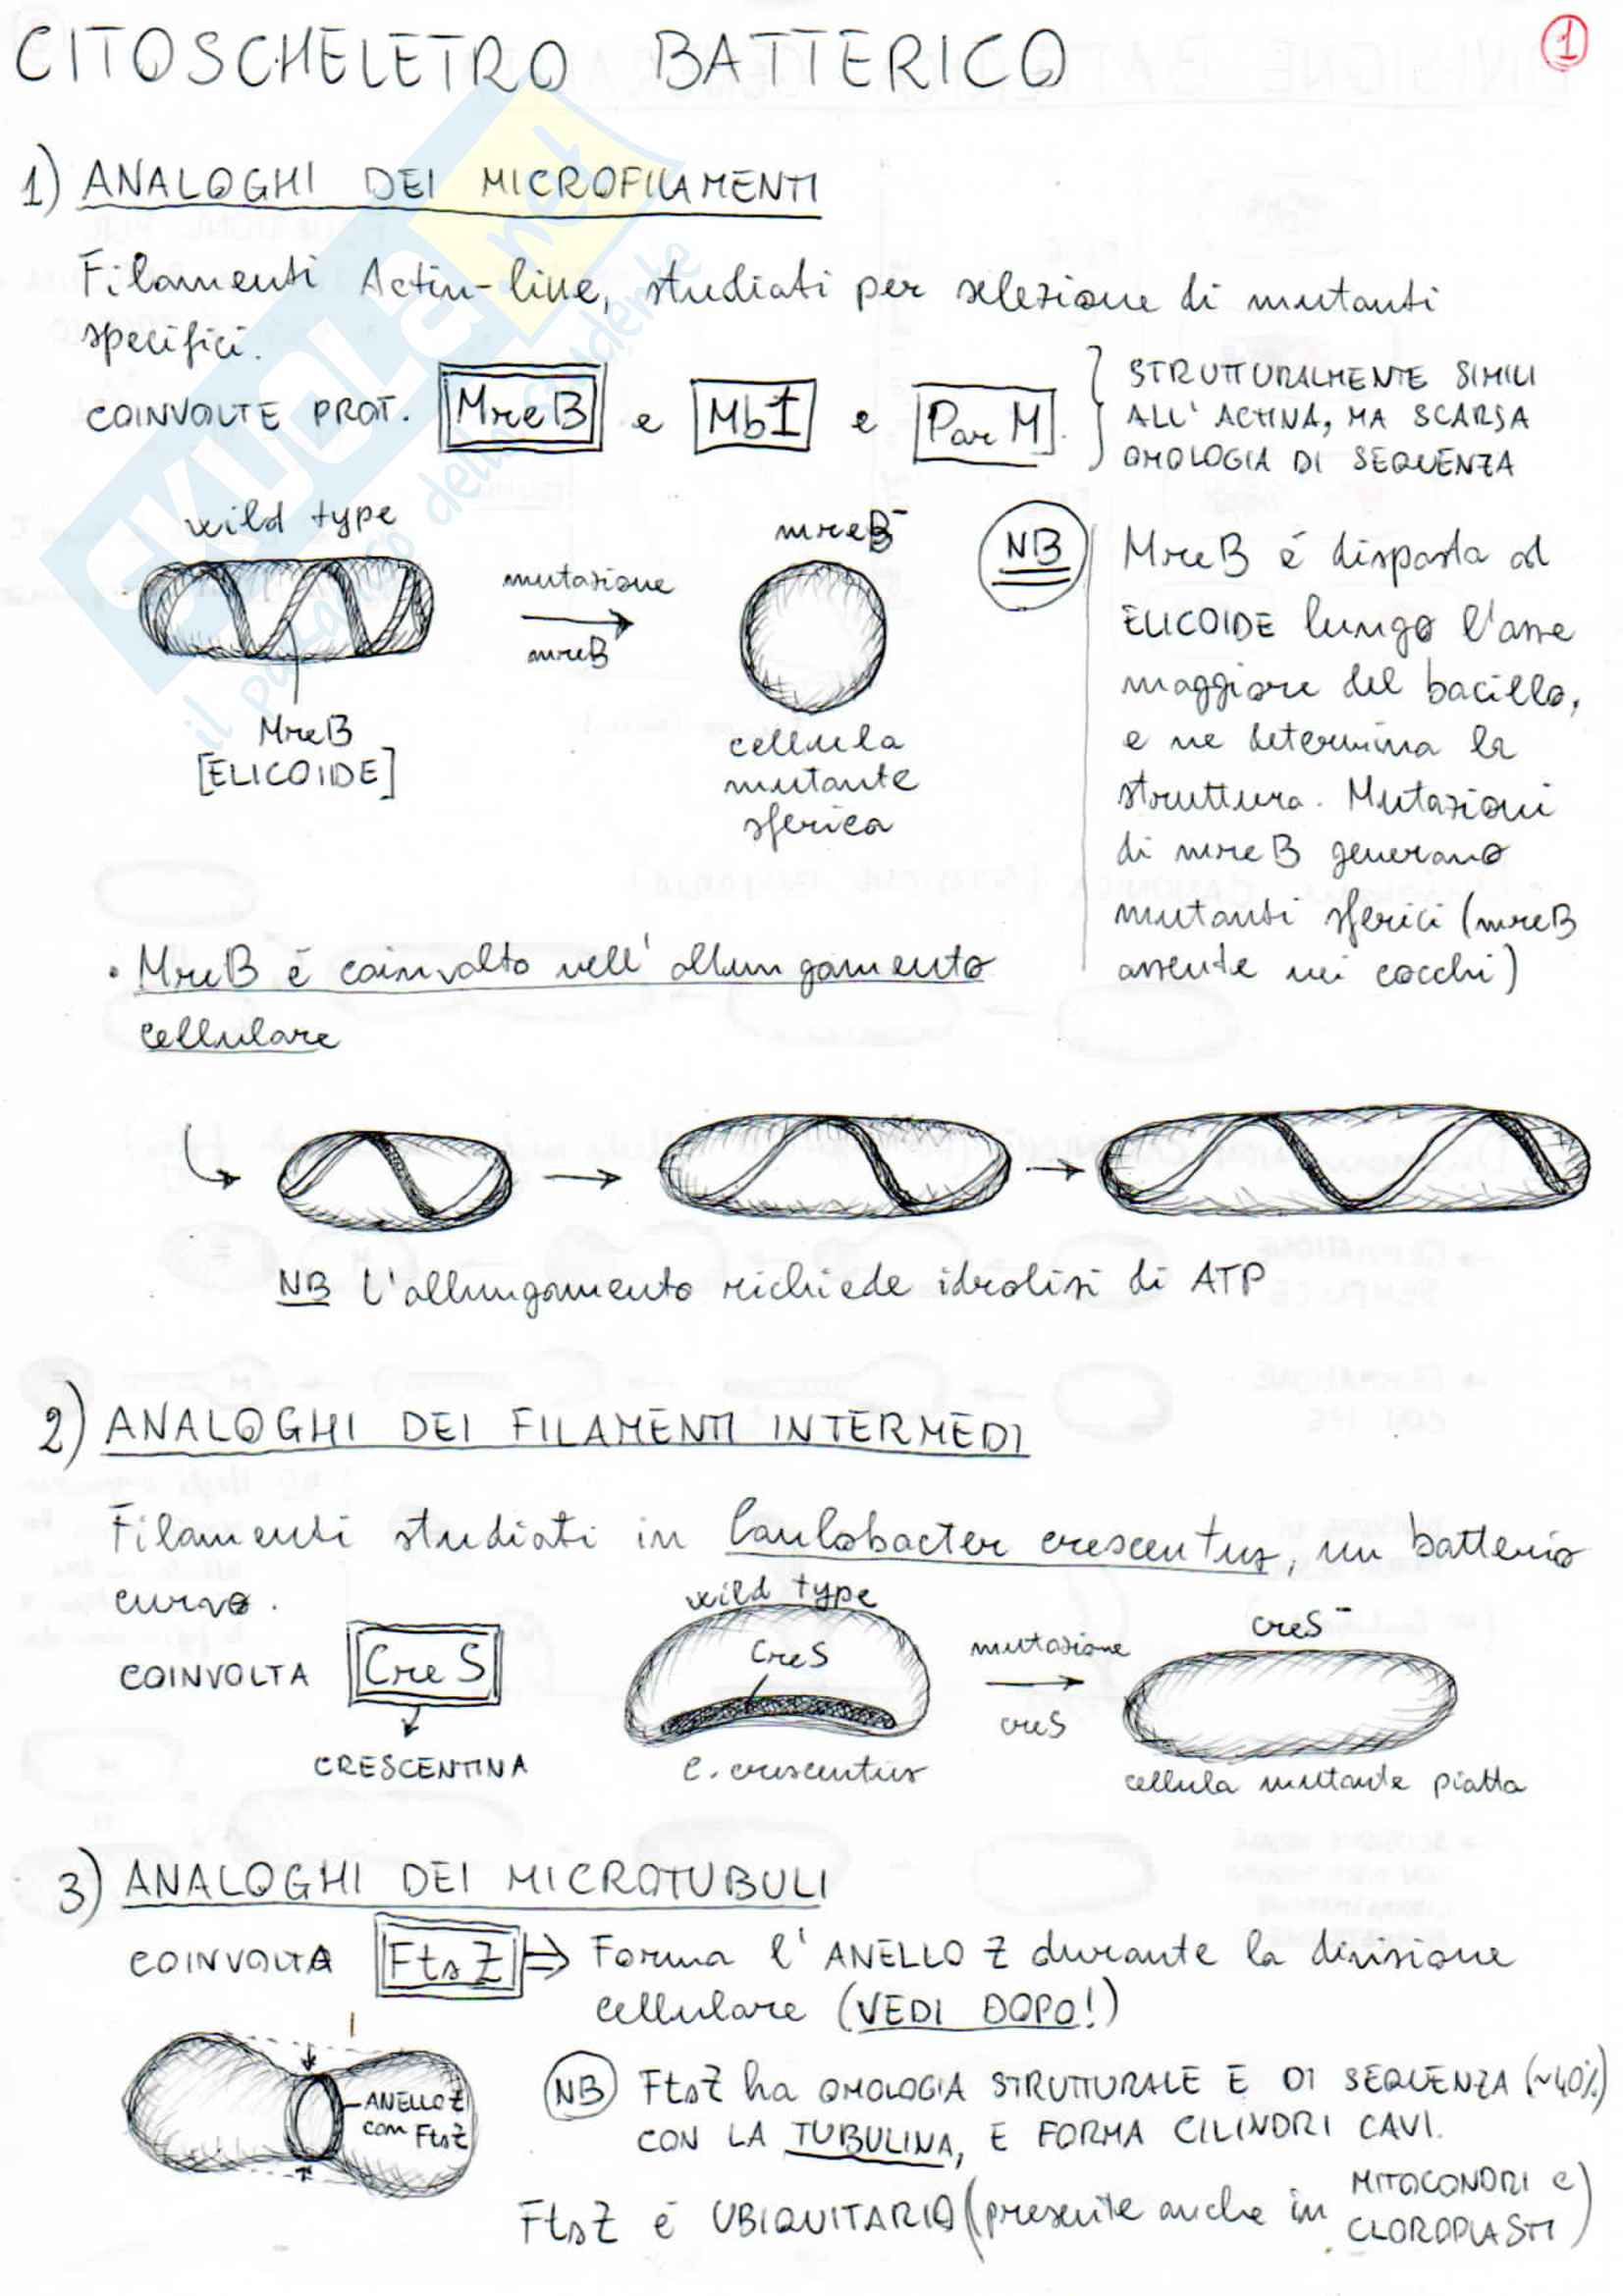 CITOSCHELETRO BATTERICO
1
1) ANALOGHI DEI MICROFILAMENTI
Filamenti Actin-like, studiati per selezione di mutanti
specifici.
COINVOLTE PROT. MreB e Mbl e ParM.
STRUTTURALMENTE SIMILI
ALL'ACTINA, MA SCARSA
OMOLOGIA DI SEQUENZA
wild type
mutazione
mreB
mreB-
MreB
[ELICOIDE]
cellula
mutante
sferica
NB
MreB é disposta ad
ELICOIDE lungo l'asse
maggiore del bacillo,
e ne determina la
struttura. Mutazioni
di mreB generano
mutanti sferici (mreB
assente nei cocchi)
• MreB é coinvolto nell'allungamento
cellulare
NB l'allungamento richiede idrolisi di ATP
2) ANALOGHI DEI FILAMENTI INTERMEDI
Filamenti studiati in Caulobacter crescentus, un batterio
curvo.
COINVOLTA CreS
CRESCENTINA
wild type
CreS
C. crescentus
mutazione
creS
creS-
cellula mutante piatta
3) ANALOGHI DEI MICROTUBULI
COINVOLTA FtsZ ⇒ Forma l'ANELLO Z durante la divisione
cellulare (VEDI DOPO!)
ANELLO Z
con FtsZ
NB FtsZ ha OMOLOGIA STRUTTURALE E DI SEQUENZA (~40%)
CON LA TUBULINA, E FORMA CILINDRI CAVI.
FtsZ é UBIQUITARIO (presente anche in MITOCONDRI e
CLOROPLASTI)
SKUOLA.net
il paradiso dello studente